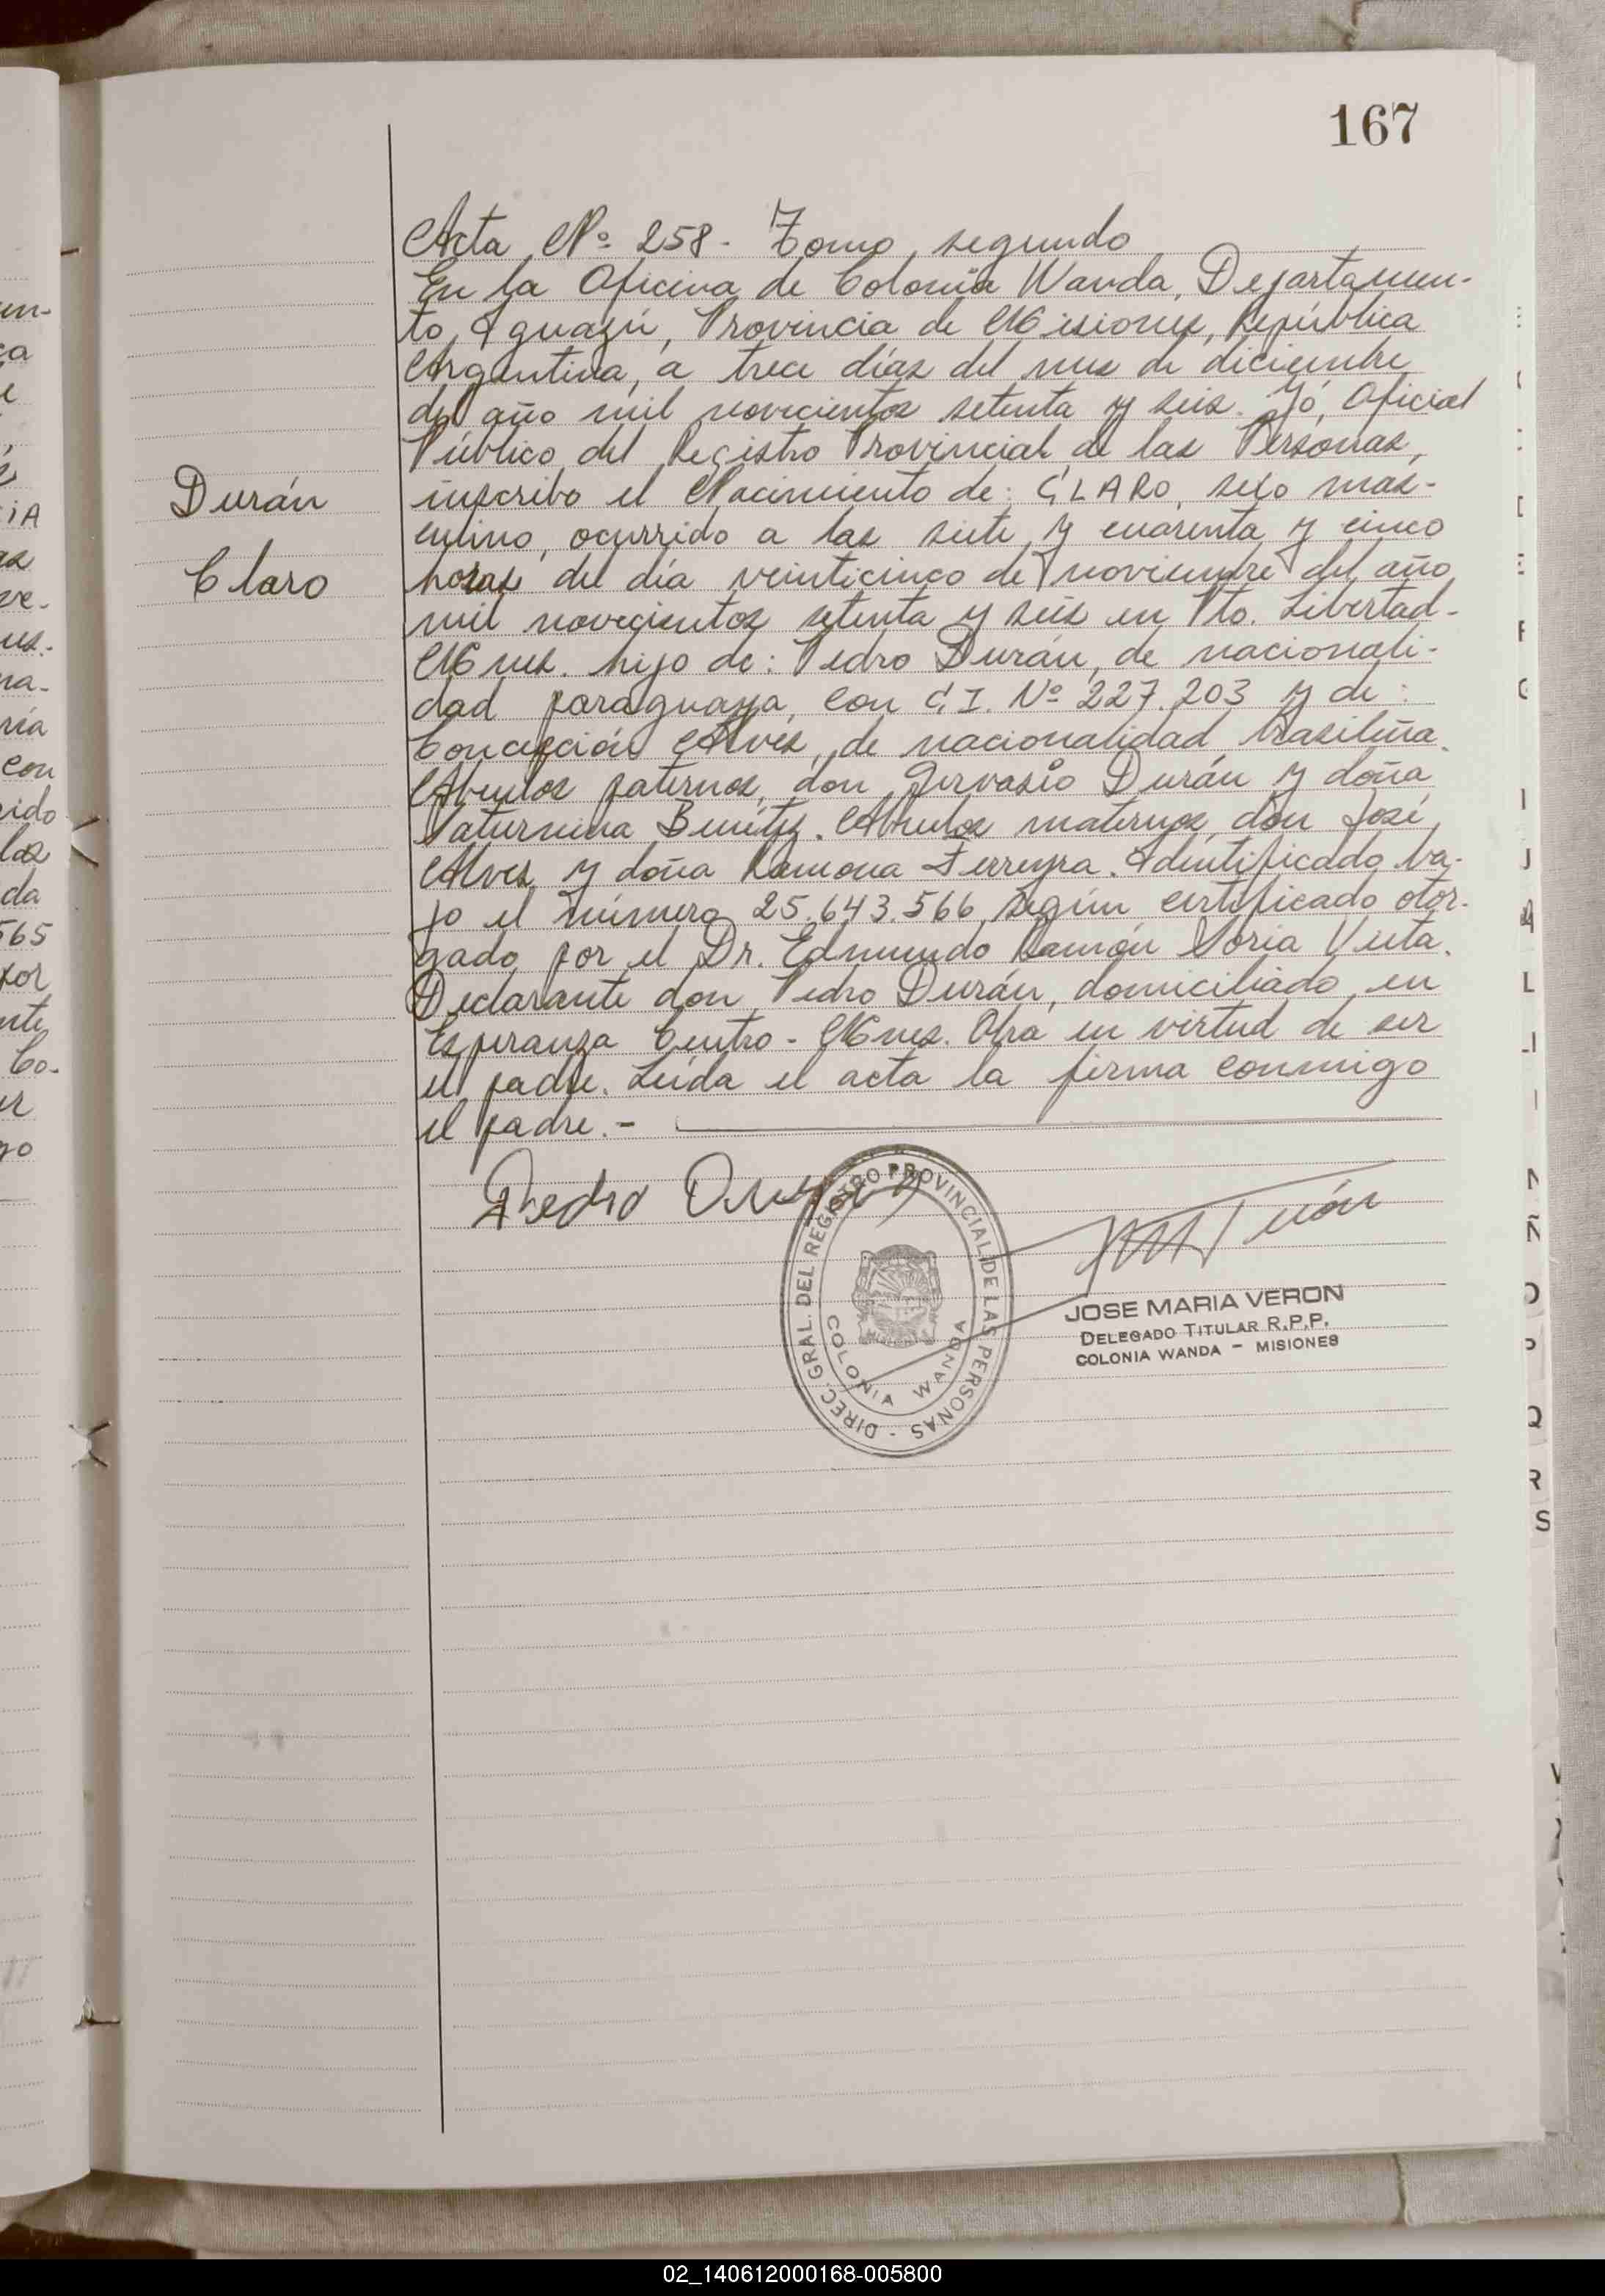 167
Acta Nº 258 - Tomo segundo
En la Oficina de Colonia Wanda, Departamen-
to Iguazú, Provincia de Misiones, República
Argentina, a trece días del mes de diciembre
del año mil novecientos setenta y seis. Yó, Oficial
Público del Registro Provincial de las Personas,
inscribo el Nacimiento de: CLARO, sexo mas-
culino, ocurrido a las siete y cuarenta y cinco
horas del día veinticinco de noviembre del año
mil novecientos setenta y seis en Pto. Libertad-
Mnes. hijo de: Pedro Durán, de nacionali-
dad paraguaya, con C.I. Nº 227.203 y de:
Concepción Alves, de nacionalidad brasileña.
Abuelos paternos, don Gervasio Durán y doña
Saturnina Benítez. Abuelos maternos, don José
Alves y doña Ramona Ferreyra. Identificado ba-
jo el número 25.643.566, según certificado otor-
gado por el Dr. Edmundo Ramón Soria Vieta.
Declarante don Pedro Durán, domiciliado en
Esperanza Centro - Mnes. Obra en virtud de ser
el padre. Leída el acta la firma conmigo
el padre.-
Durán
Claro
Pedro Duran
DIREC. GRAL. DEL REGISTRO PROVINCIAL DE LAS PERSONAS -
COLONIA WANDA
JOSE MARIA VERON
DELEGADO TITULAR R.P.P.
COLONIA WANDA - MISIONES
02_140612000168-005800